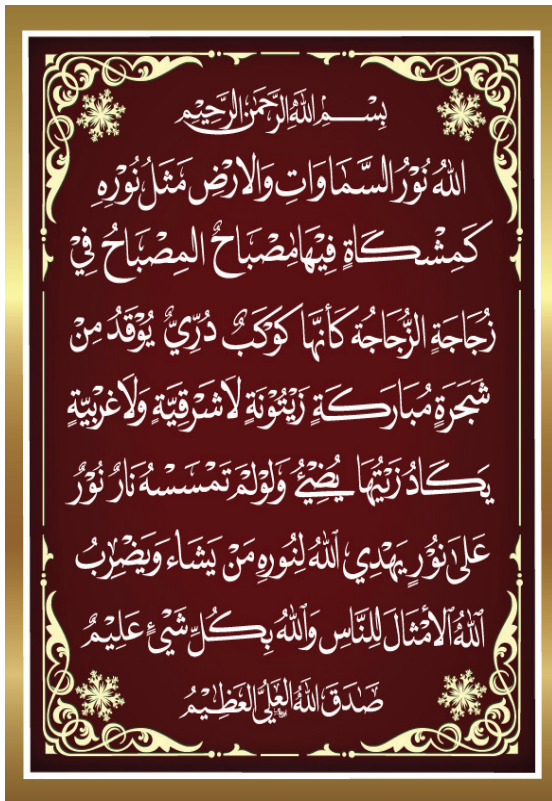 بِسْمِ اللهِ الرَّحْمٰنِ الرَّحِيْمِ
اللهُ نُوْرُ السَّمَاوَاتِ وَالارْضِ مَثَلُ نُوْرِهِ
كَمِشْكَاةٍ فِيْهَا مِصْبَاحٌ المِصْبَاحُ فِيْ
زُجَاجَةٍ الزُّجَاجُة كَأنَّهَا كَوْكَبٌ دُرِّيٌّ يُوْقَدُ مِنْ
شَجَرَةٍ مُبَارَكَةٍ زَيْتُوْنَةٍ لَا شَرْقِيَّةٍ وَلَا غَرْبِيَّةٍ
يَكَادُ زَيْتُهَا يُضِيْئُ وَلَوْ لَمْ تَمْسَسْهُ نَارٌ نُوْرٌ
عَلىٰ نُوْرٍ يَهْدِي اللهُ لِنُورِهِ مَنْ يَشَاء وَيَضْرِبُ
اللهُ الأمْثَالَ لِلنَّاسِ وَاللهُ بِكُلِّ شَيْءٍ عَلِيْمٌ
صَدَقَ اللهُ العَلِيُّ العَظِيْمُ